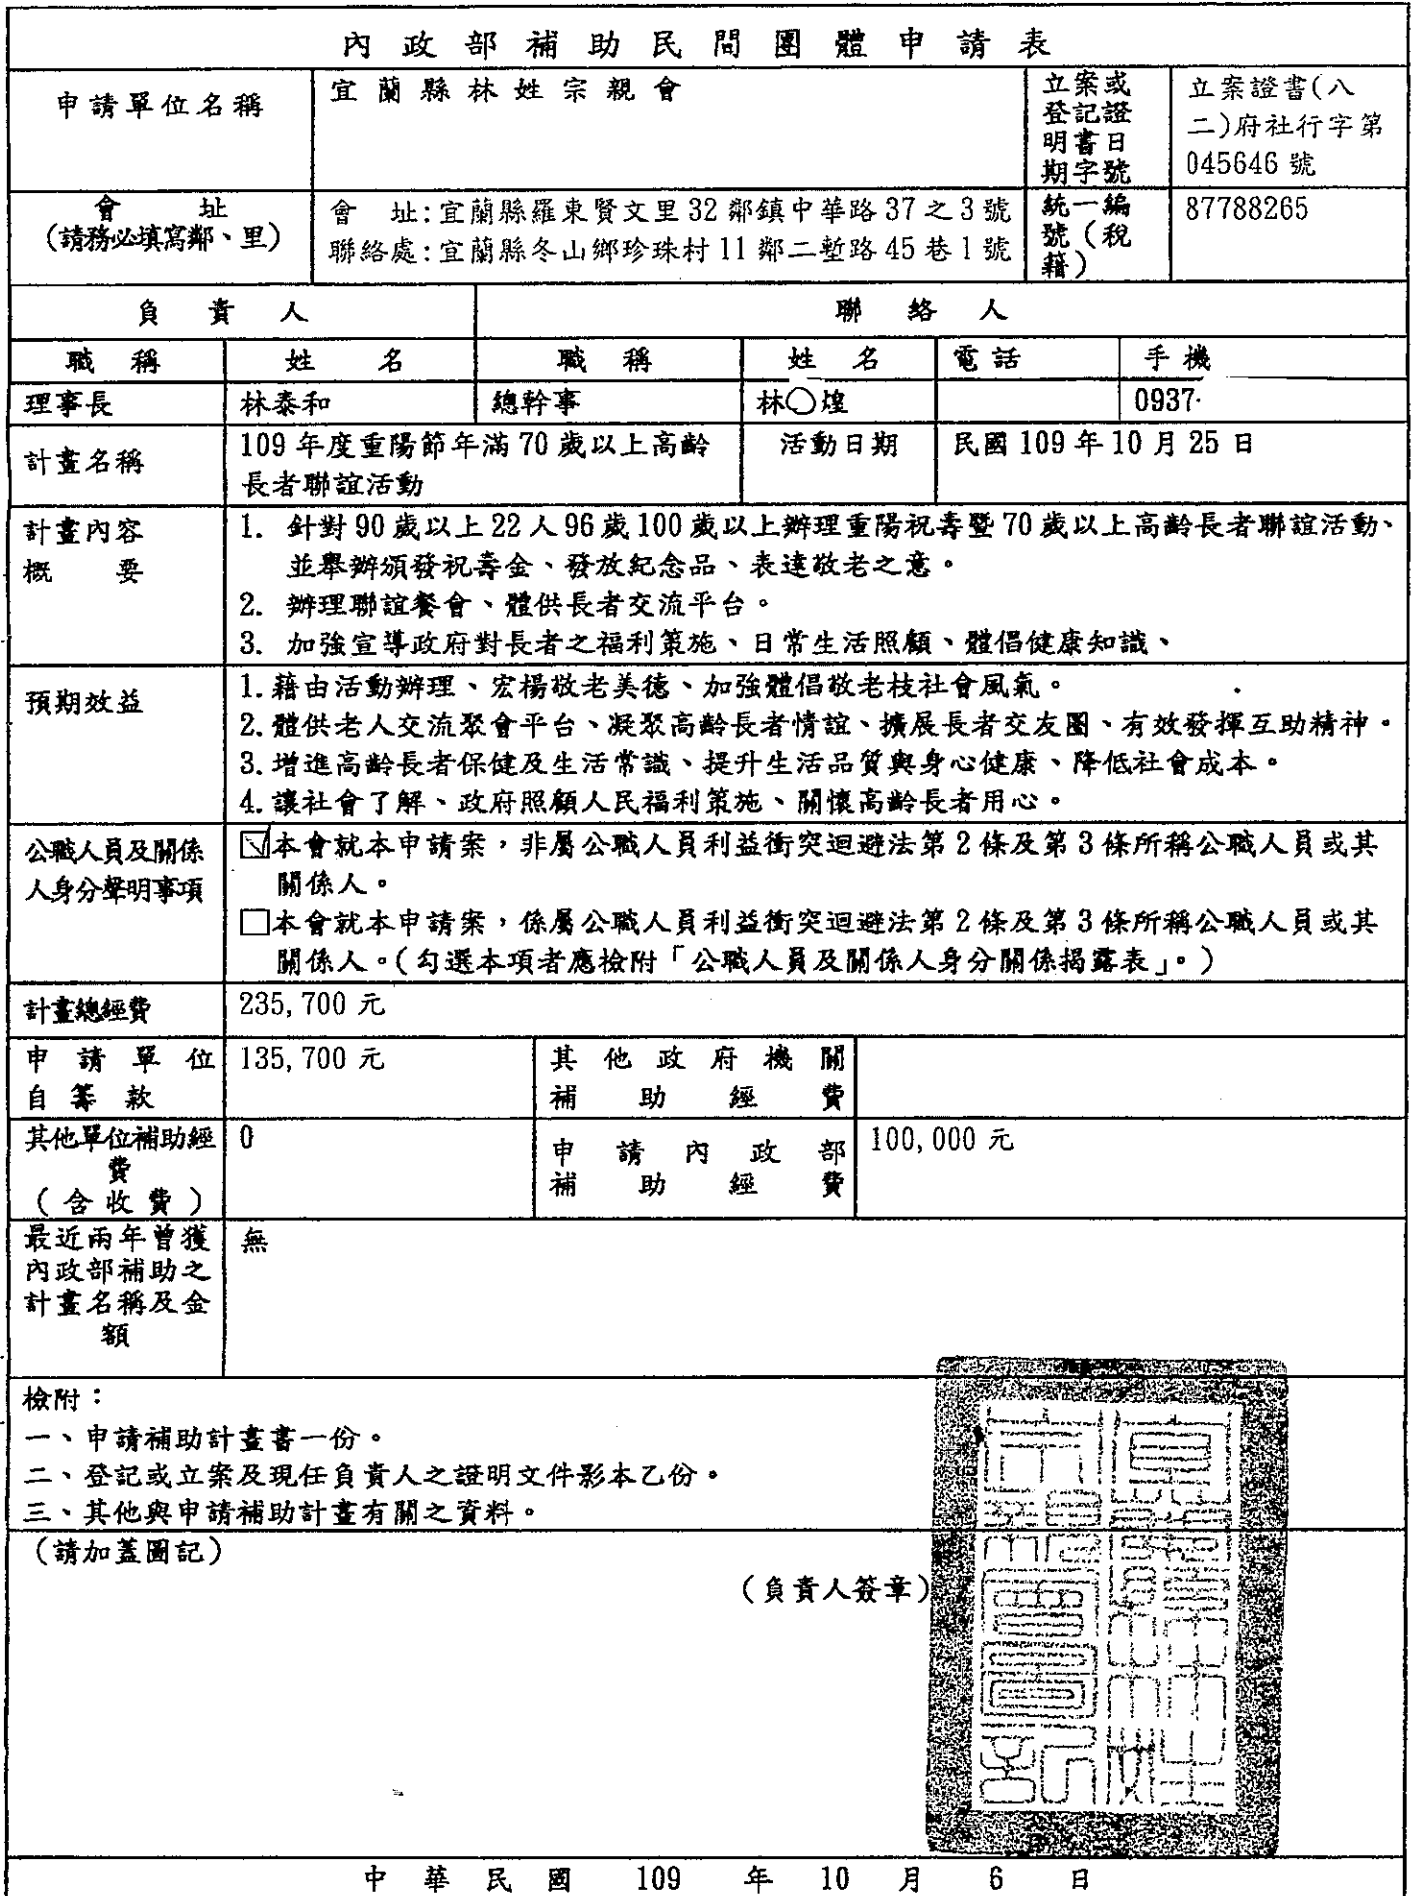 內政部補助民間團體申請表
申請單位名稱
宜蘭縣林姓宗親會
立案或
登記證
明書日
期字號
立案證書(八
二)府社行字第
045646 號
會 址
(請務必填寫鄰、里)
會 址:宜蘭縣羅東賢文里 32 鄰鎮中華路 37 之 3 號
聯絡處:宜蘭縣冬山鄉珍珠村 11 鄰二塹路 45 巷 1 號
統一編
號(稅
籍)
87788265
負 責 人
聯 絡 人
職 稱
姓 名
職 稱
姓 名
電話
手機
理事長
林泰和
總幹事
林○煌
0937
計畫名稱
109 年度重陽節年滿 70 歲以上高齡
長者聯誼活動
活動日期
民國 109 年 10 月 25 日
計畫內容
概 要
1. 針對 90 歲以上 22 人 96 歲 100 歲以上辦理重陽祝壽暨 70 歲以上高齡長者聯誼活動、
並舉辦頒發祝壽金、發放紀念品、表達敬老之意。
2. 辦理聯誼餐會、體供長者交流平台。
3. 加強宣導政府對長者之福利策施、日常生活照顧、體倡健康知識、
預期效益
1.藉由活動辦理、宏楊敬老美德、加強體倡敬老枝社會風氣。
2.體供老人交流聚會平台、凝聚高齡長者情誼、擴展長者交友圈、有效發揮互助精神。
3.增進高齡長者保健及生活常識、提升生活品質與身心健康、降低社會成本。
4.讓社會了解、政府照顧人民福利策施、關懷高齡長者用心。
公職人員及關係
人身分聲明事項
☑本會就本申請案,非屬公職人員利益衝突迴避法第 2 條及第 3 條所稱公職人員或其
關係人。
□本會就本申請案,係屬公職人員利益衝突迴避法第 2 條及第 3 條所稱公職人員或其
關係人。(勾選本項者應檢附「公職人員及關係人身分關係揭露表」。)
計畫總經費
235,700 元
申請單位
自籌款
135,700 元
其他政府機關
補助經費
其他單位補助經
費
(含收費)
0
申請內政部
補助經費
100,000 元
最近兩年曾獲
內政部補助之
計畫名稱及金
額
無
檢附:
一、申請補助計畫書一份。
二、登記或立案及現任負責人之證明文件影本乙份。
三、其他與申請補助計畫有關之資料。
(請加蓋圖記)
(負責人簽章)
中 華 民 國 109 年 10 月 6 日